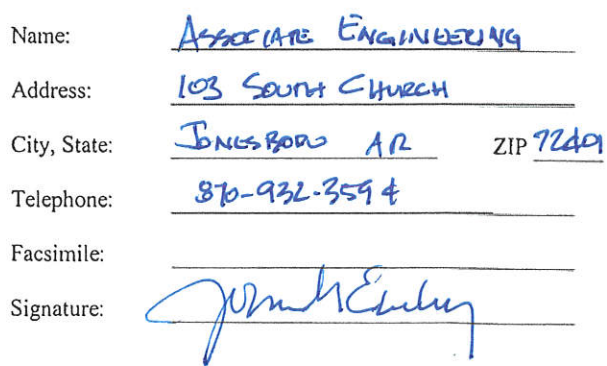 Name: ASSOCIATE ENGINEERING
Address: 103 SOUTH CHURCH
City, State: JONESBORO AR ZIP 72401
Telephone: 870-932-3594
Facsimile:
Signature: